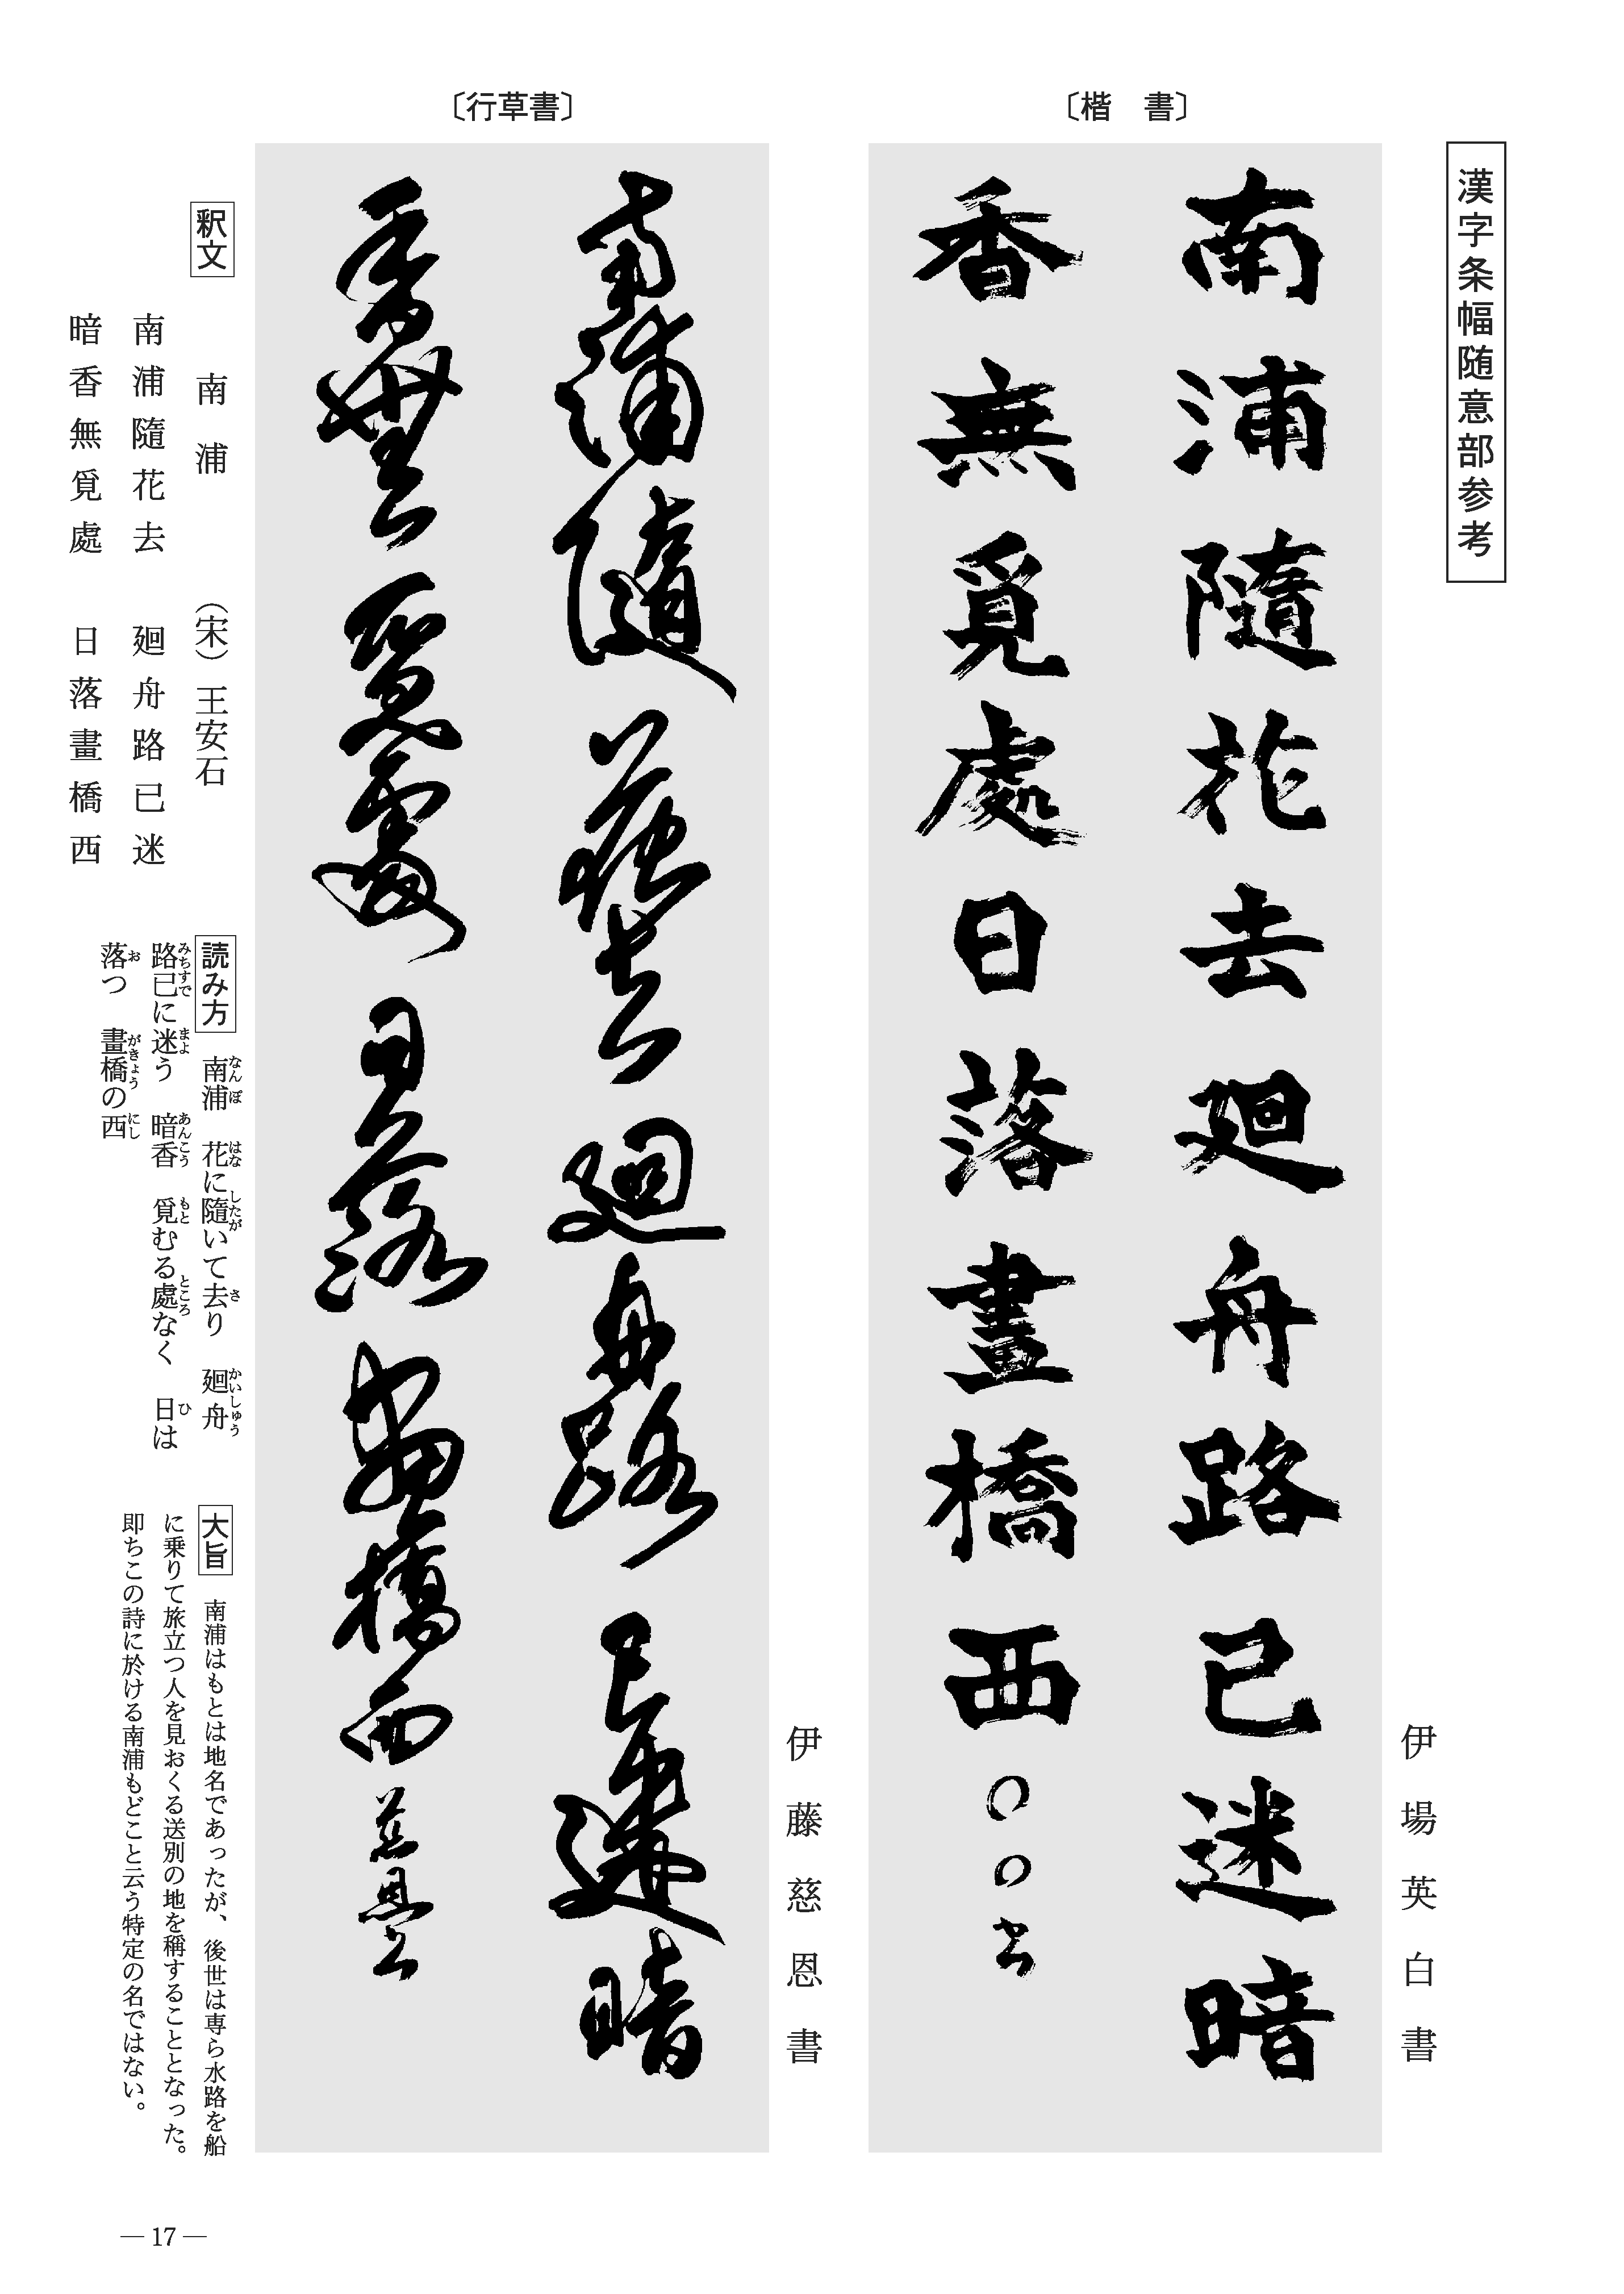 漢字条幅随意部参考
〔楷　書〕
伊場英白書
南浦隨花去廻舟路已迷暗
香無覓處日落畫橋西○○書
〔行草書〕
伊藤慈恩書
南浦隨花去廻舟路已迷暗
香無覓處日落畫橋西慈恩書
釈文
南浦　（宋）王安石
南浦隨花去　廻舟路已迷
暗香無覓處　日落畫橋西
読み方　南浦　花に隨いて去り　廻舟
なんぽ　はな　したが　さ　かいしゅう
路已に迷う　暗香　覓むる處なく　日は
みちすで　まよ　あんこう　もと　ところ　ひ
落つ　畫橋の西
お　がきょう　にし
大旨　南浦はもとは地名であったが、後世は専ら水路を船
に乗りて旅立つ人を見おくる送別の地を稱することとなった。
即ちこの詩に於ける南浦もどこと云う特定の名ではない。
— 17 —